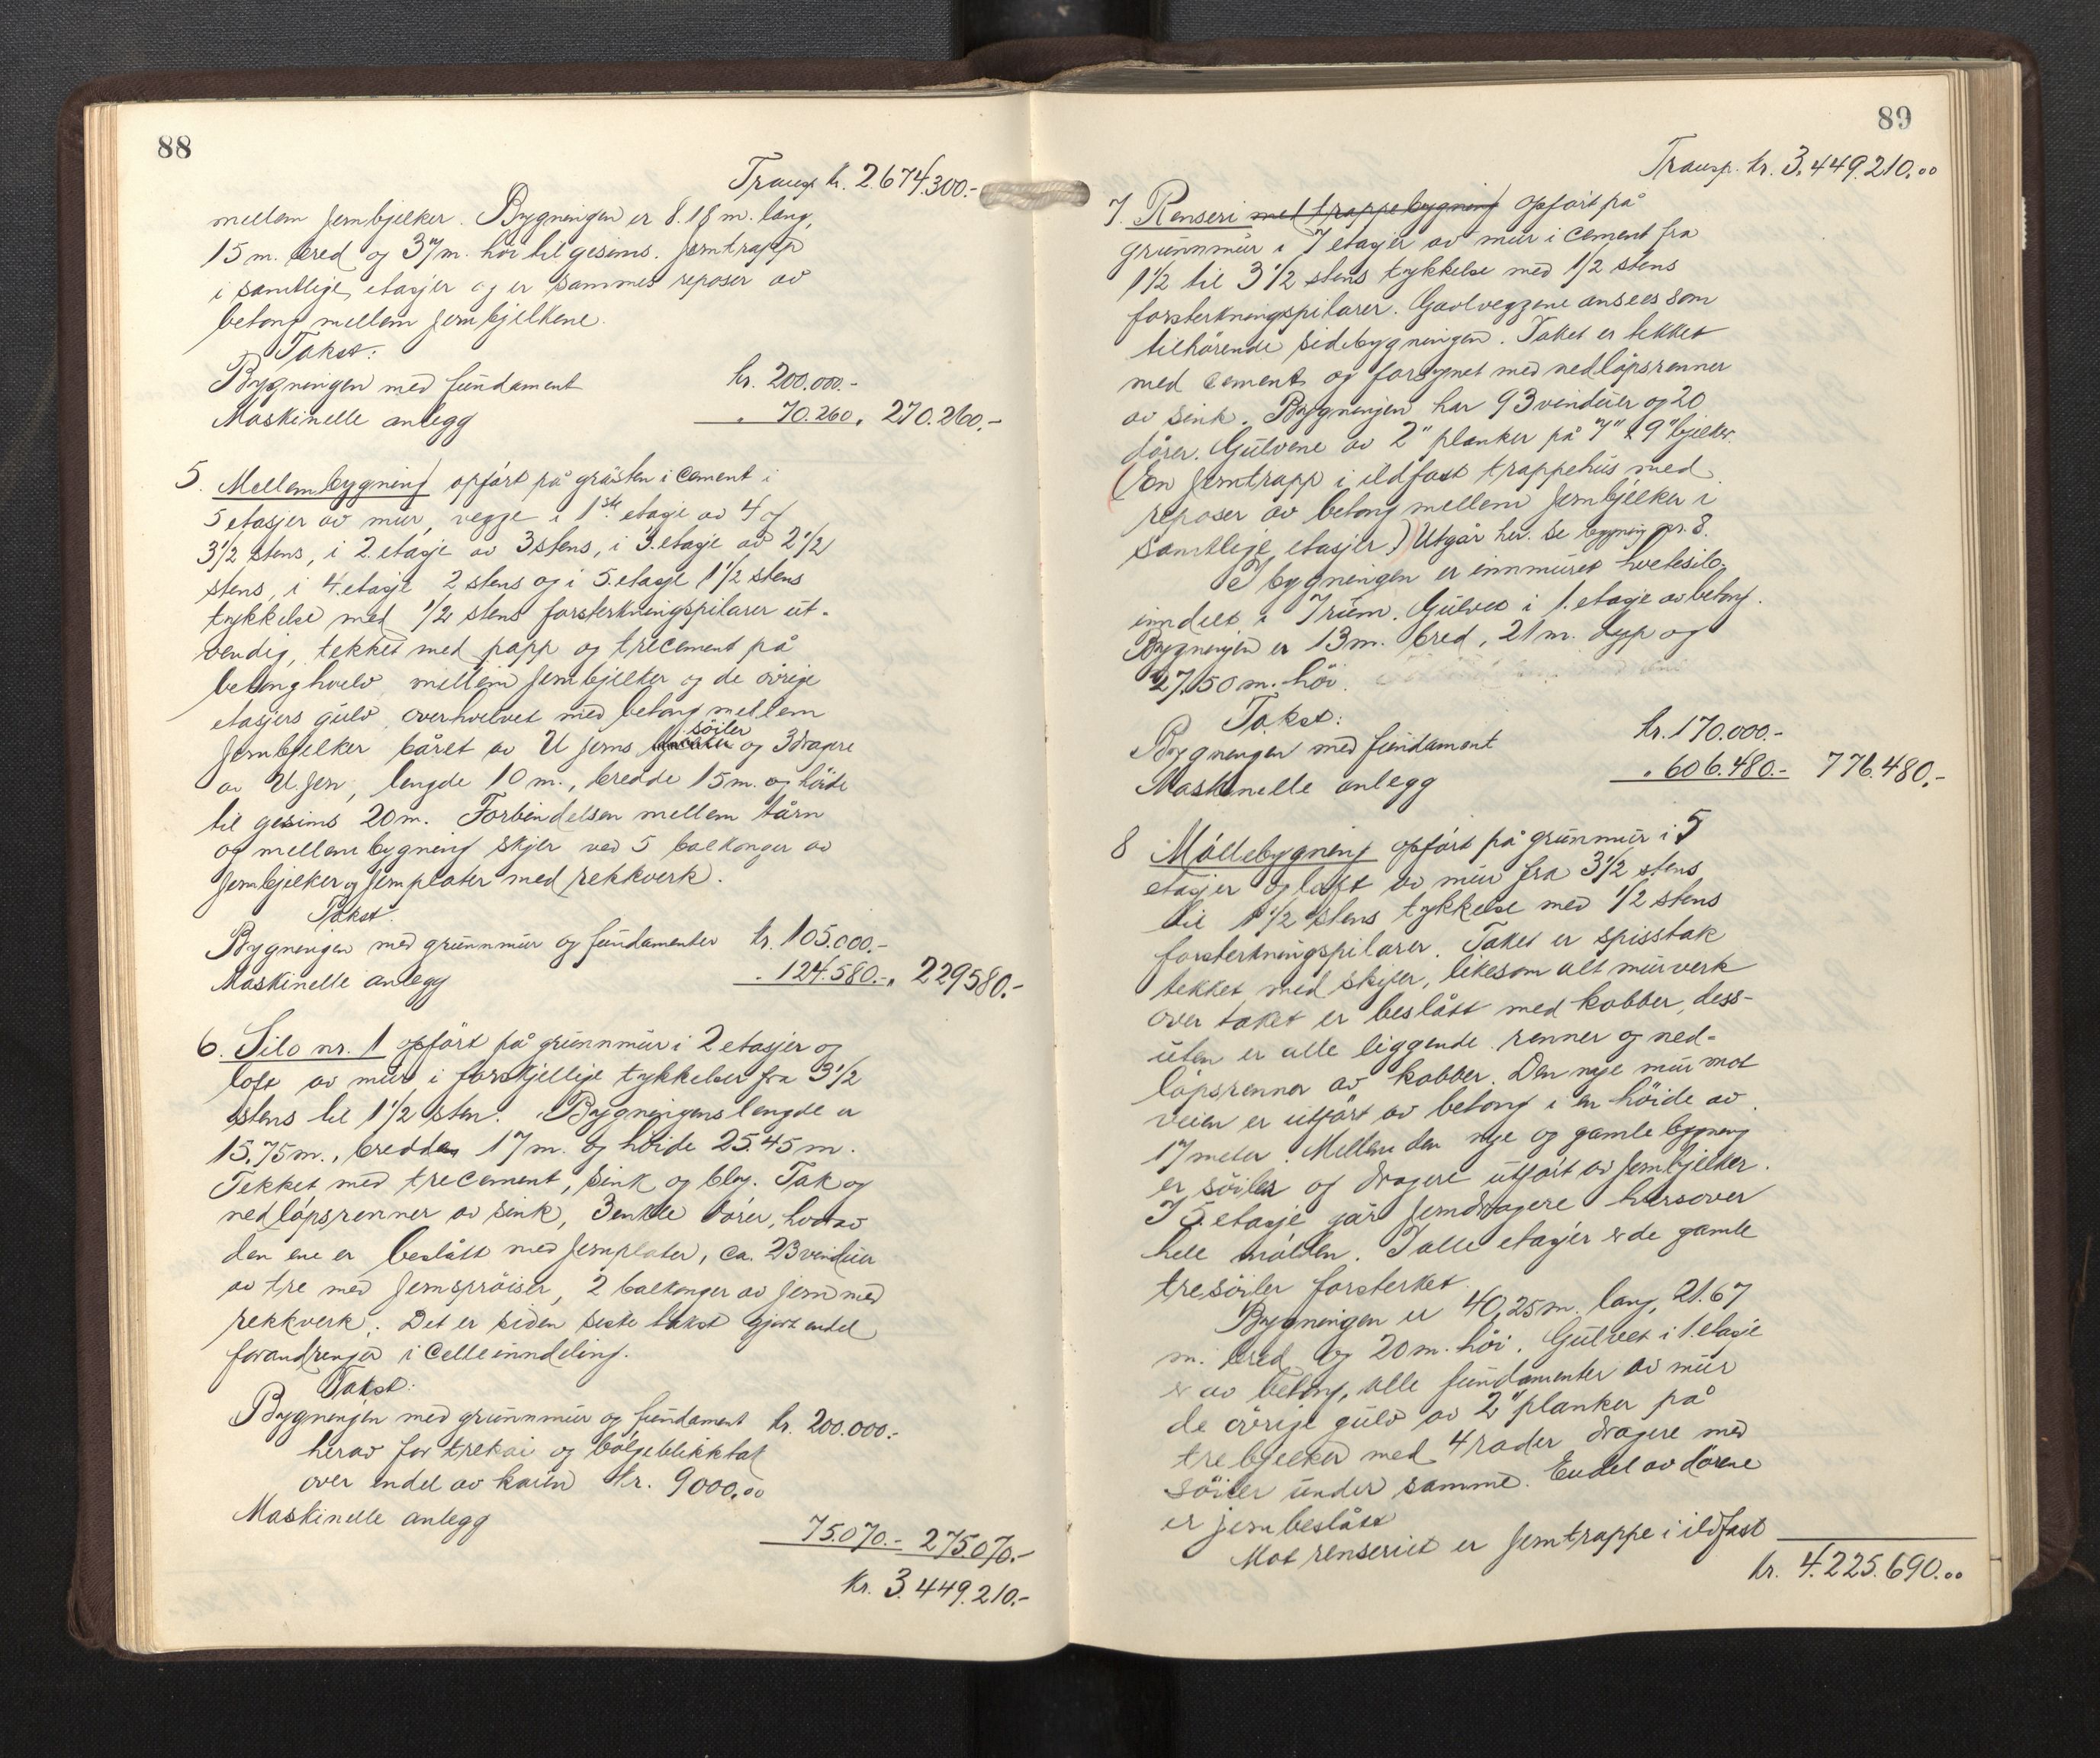 88
Transp kr. 2.674.300.-
mellem jernbjelker. Bygningen er 8.18 m. lang,
15 m. bred og 37 m. høi til gesims. Jerntrapp
i samtlige etasjer og er sammes reposer av
betong mellem jernbjelkene.
Takst:
Bygningen med fundament kr. 200.000.-
Maskinelle anlegg " 70.260. 270.260.-
5. Mellembygning opført på gråsten i cement i
5 etasjer av mur, vegge i 1ste etage av 4 og
3 1/2 stens, i 2. etasje av 3 stens, i 3. etasje av 2 1/2
stens, i 4. etasje 2 stens og i 5. etasje 1 1/2 stens
tykkelse med 1/2 stens forsterkningspilarer ut-
vendig, tekket med papp og trecement på
betonghvelv mellem jernbjelker og de øvrige
etasjers gulv overhvelvet med betong mellem
søiler
jernbjelker båret av U jerns og 3 dragere
av U.jern, lengde 10 m., bredde 15 m. og høide
til gesims 20 m. Forbindelsen mellem tårn
og mellembygning skjer ved 5 balkonger av
jernbjelker og jernplater med rekkverk.
Takst.
Bygningen med grunnmur og fundamenter kr. 105.000.-
Maskinelle anlegg " 124.580.- " 229580.-
6. Silo nr. 1 opført på grunnmur i 2 etasjer og
loft av mur i forskjellige tykkelser fra 3 1/2
stens til 1 1/2 sten. Bygningens lengde er
15,75 m., bredden 17 m. og høide 25.45 m.
Tekket med trecement, sink og bly. Tak og
nedløpsrenner av sink, 3 enkle dører, hvorav
den ene er beslått med jernplater, ca. 23 vinduer
av tre med jernsprøiser, 2 balkonger av jern med
rekkverk. Det er siden siste takst gjort endel
forandringer i celleinndeling.
Takst:
Bygningen med grunnmur og fundament kr. 200.000.-
herav for trekai og bølgeblikktak
over endel av kaien kr. 9000.00
Maskinelle anlegg
75.070.- 275.070.-
Kr. 3.449.210.-
89
Transp. kr. 3.449.210.00
7. Renseri med trappebygning opført på
grunnmur i 7 etasjer av mur i cement fra
1 1/2 til 3 1/2 stens tykkelse med 1/2 stens
forsterkningspilarer. Gavlveggene ansees som
tilhørende sidebygningen. Taket er tekket
med cement og forsynet med nedløpsrenner
av sink. Bygningen har 93 vinduer og 20
dører. Gulvene av 2" planker på 7" x 9" bjelker.
(En jerntrapp i ildfast trappehus med
reposer av betong mellem jernbjelker i
samtlige etasjer.) Utgår her. Se bygning nr. 8.
I bygningen er innmuret hvetesilo,
inndelt i 7 rum. Gulvet i 1. etasje av betong.
Bygningen er 13 m. bred, 21 m. dyp og
27,50 m. høi.
Takst:
Bygningen med fundament kr. 170.000.-
Maskinelle anlegg " 606.480.- 776.480.-
8 Møllebygning opført på grunnmur i 5
etasjer og loft av mur fra 3 1/2 stens
til 1 1/2 stens tykkelse med 1/2 stens
forsterkningspilarer. Taket er spisstak
tekket med skifer, likesom alt murverk
over taket er beslått med kobber, dess-
uten er alle liggende renner og ned-
løpsrenner av kobber. Den nye mur mot
veien er utført av betong i en høide av
17 meter. Mellem den nye og gamle bygning
er søiler og dragere utført av jernbjelker.
I 5. etasje går jerndragere tversover
hele møllen. I alle etasjer er de gamle
tresøiler forsterket.
Bygningen er 40,25 m. lang, 21.67
m. bred og 20 m. høi. Gulvet i 1. etasje
er av betong, alle fundamenter av mur
de øvrige gulv av 2" planker på
trebjelker med 4 rader dragere med
søiler under samme. Endel av dørene
er jernbeslått
Mot renseriet er jerntrappe i ildfast
kr. 4.225.690.00